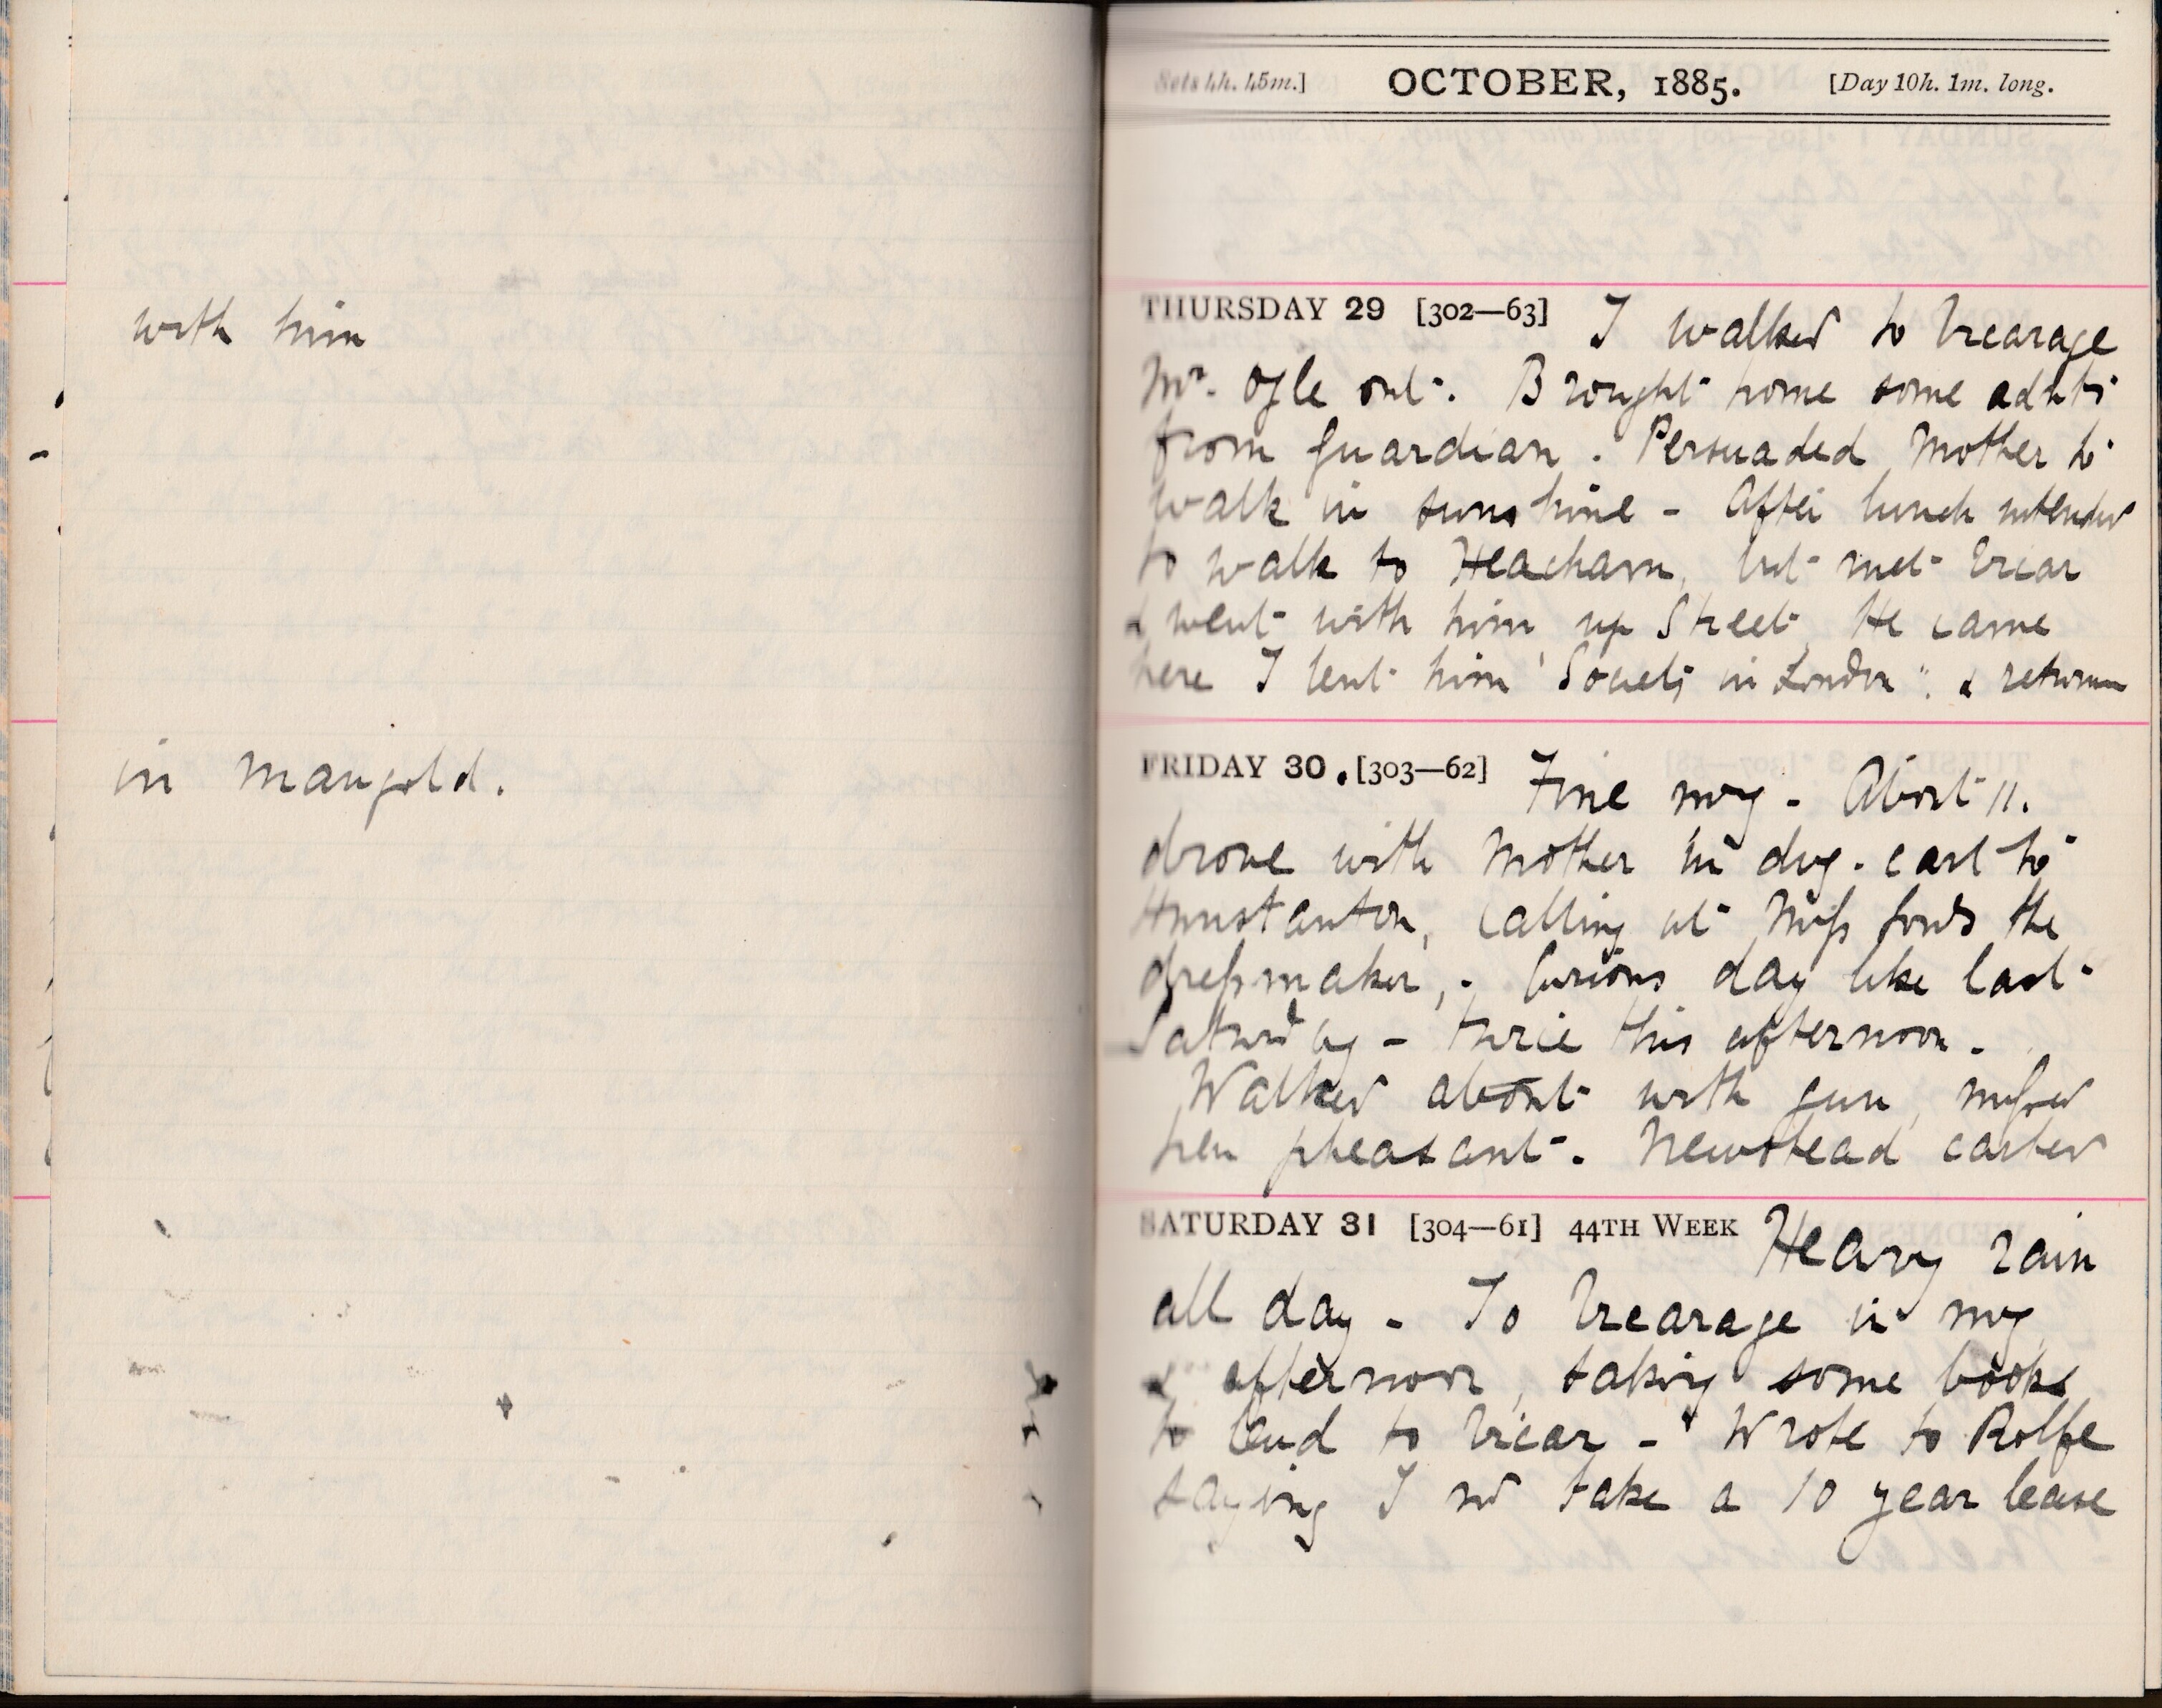 with him
in mangold.
Sets 4h. 45m.] OCTOBER, 1885. [Day 10h. 1m. long.
THURSDAY 29 [302—63] I walked to Vicarage
Mr. Ogle out. Brought home some advts
from Guardian. Persuaded Mother to
walk in sunshine - After lunch intended
to walk to Heacham, but met Vicar
& went with him up Street, He came
here I lent him 'Society in London". & returned
FRIDAY 30. [303—62] Fine mg - About 11.
drove with Mother in dog-cart to
Hunstanton, calling at Miss Fords the
dressmaker, - Curious day like last
Saturday - this afternoon.
Walked about with gun, missed
hen pheasant. Newstead carted
SATURDAY 31 [304—61] 44TH WEEK Heavy rain
all day - To Vicarage in mg
& afternoon, taking some books
to lend to Vicar - Wrote to Rolfe
saying I wd take a 10 year lease